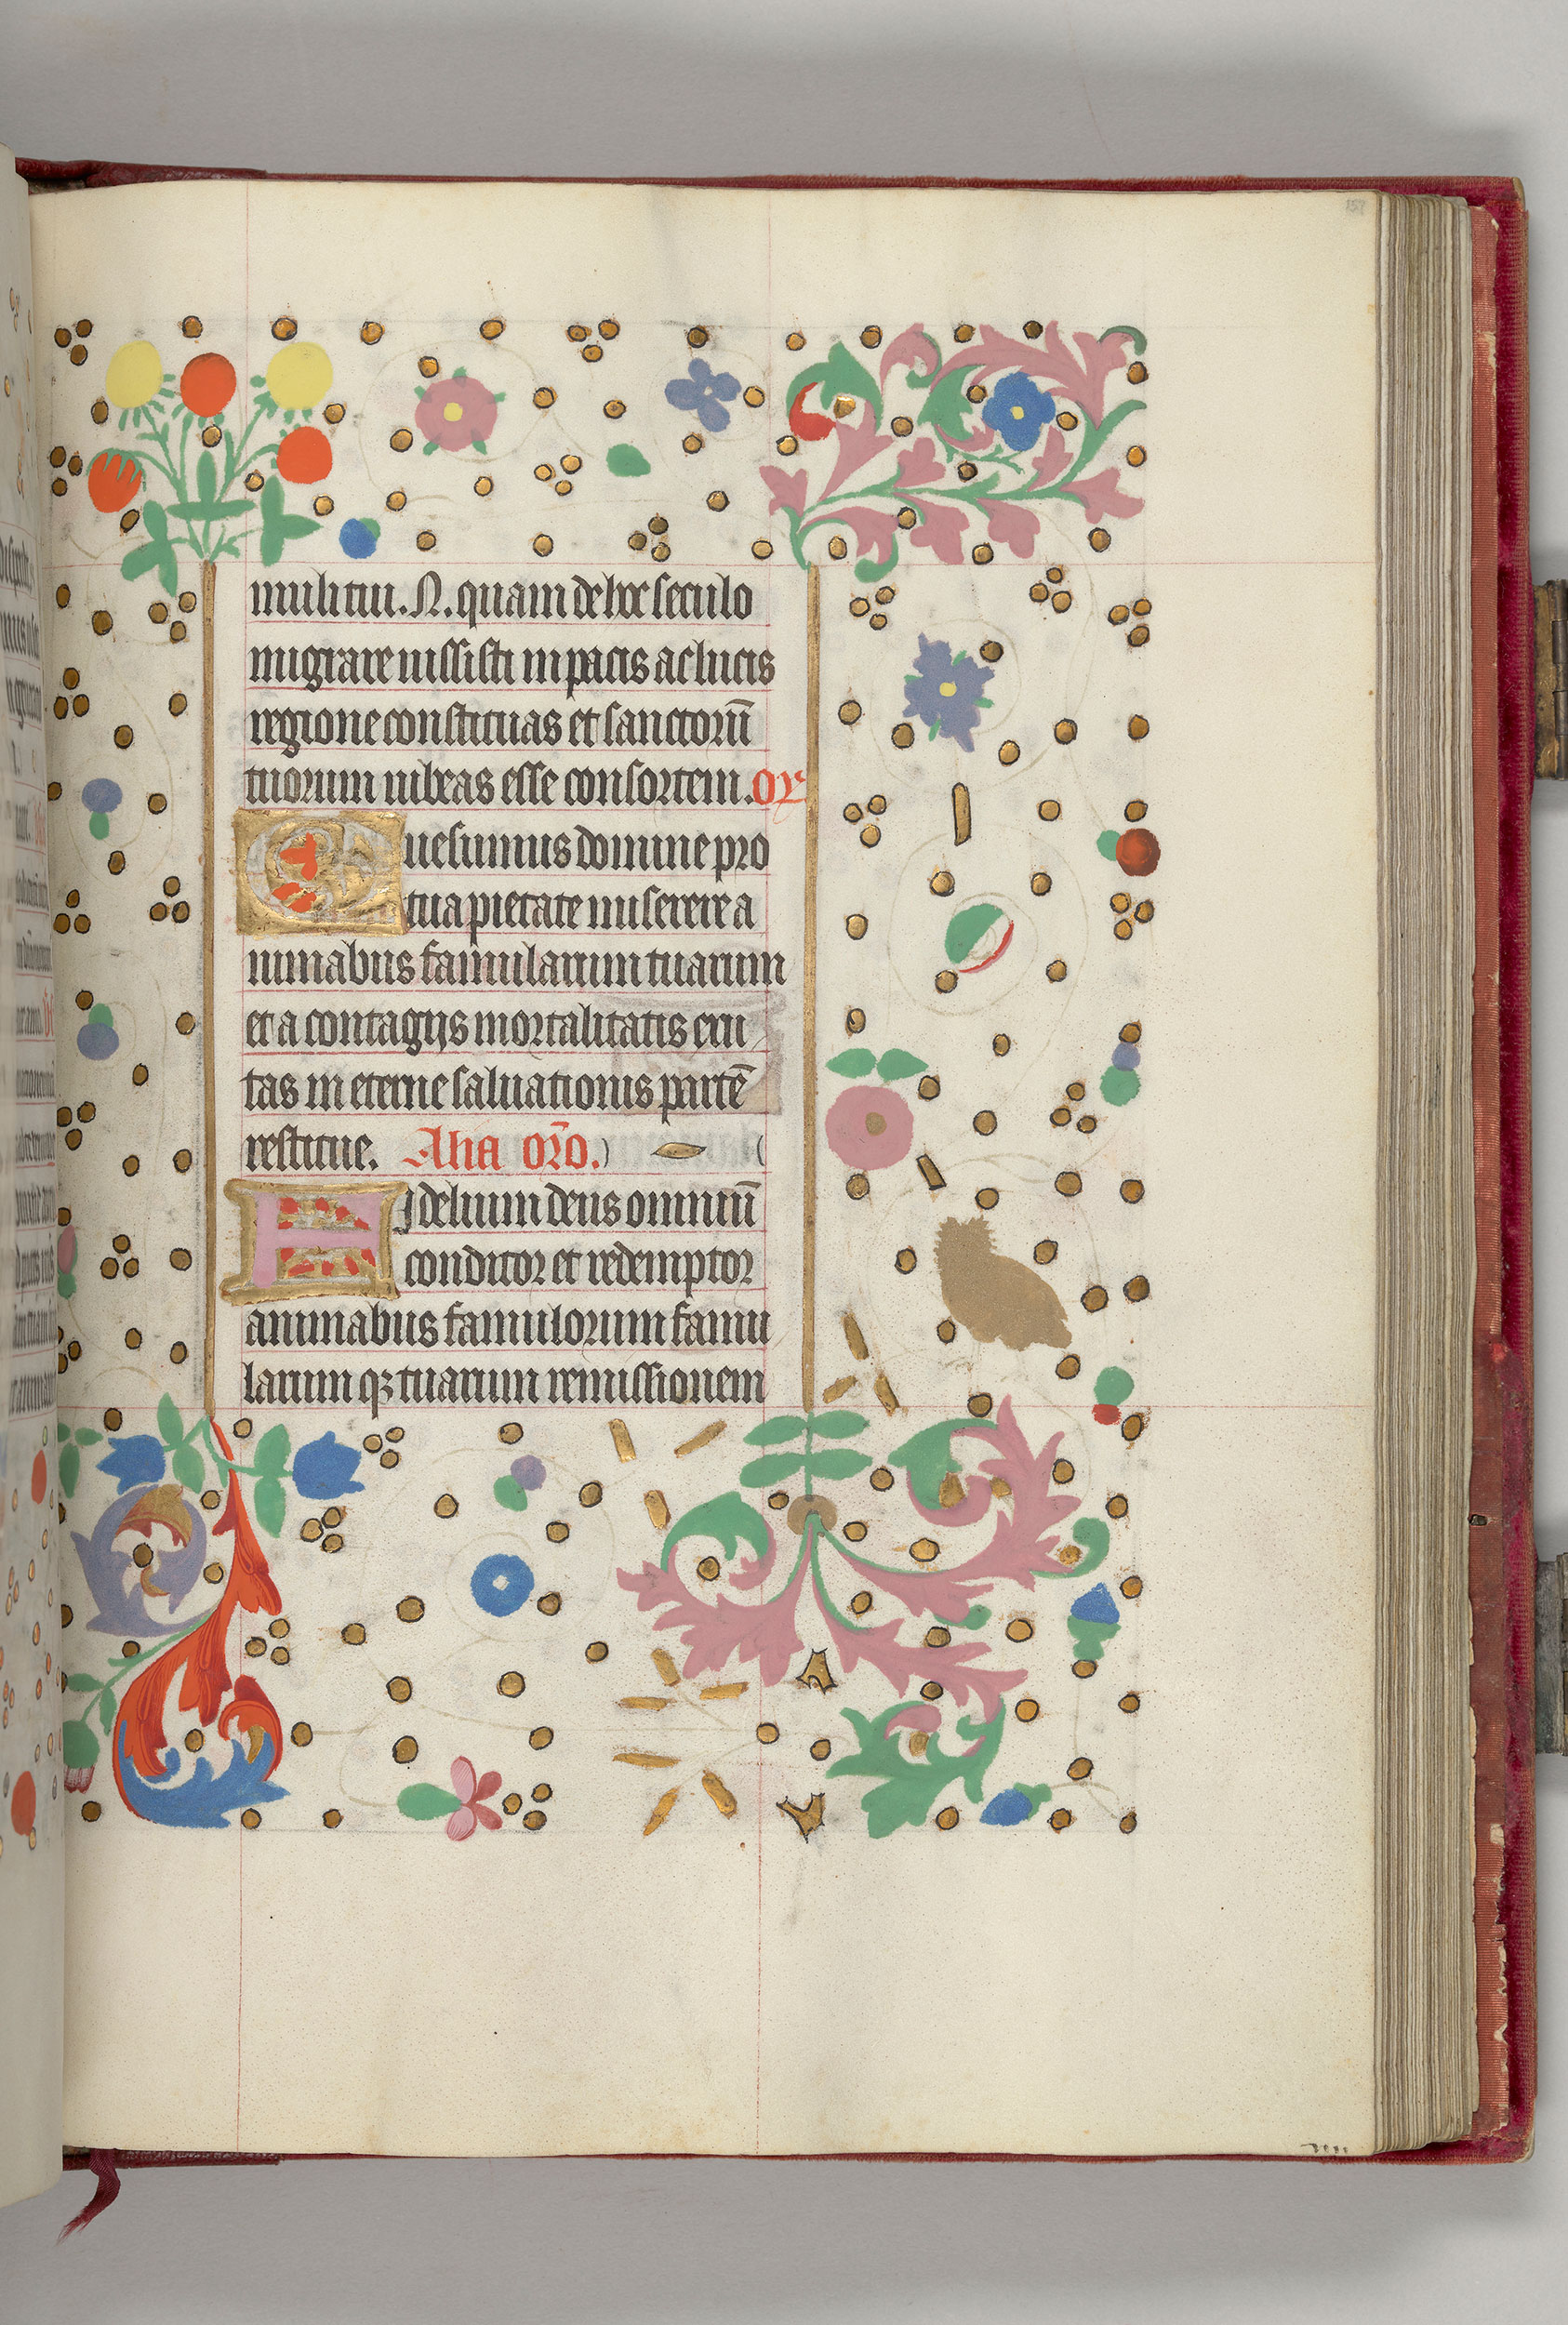 157
mulitui. N. quam de hoc seculo
migrare iussisti in pacis ac lucis
regione constituas et sanctorū
tuorum iubeas esse consortem. Or
Quesumus domine pro
tua pietate miserere a
nimabus famularum tuarum
et a contagijs mortalitatis exu
tas in eterne saluationis partē
restitue. Alia orō.
Fidelium deus omniū
conditor et redemptor
animabus famulorum famu
larum qz tuarum remissionem